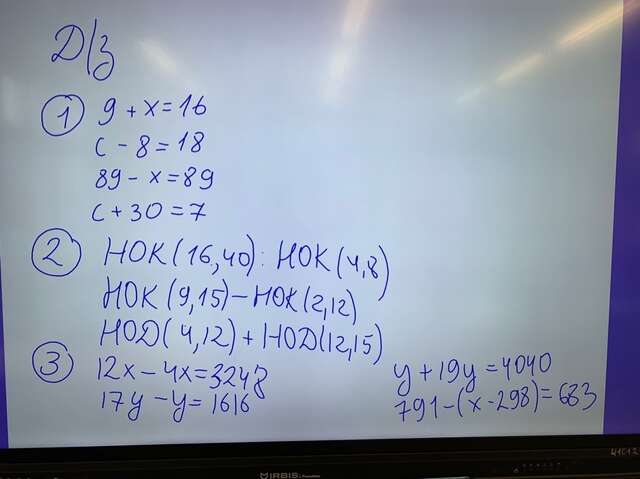 Д/з
1 9 + x = 16
c - 8 = 18
89 - x = 89
c + 30 = 7
2 НОК (16,40) : НОК (4,8)
НОК (9,15) - НОК (2,12)
НОD (4,12) + НОD (12,15)
3 12x - 4x = 3248
17y - y = 1616
y + 19y = 4040
791 - (x - 298) = 683
IRBIS